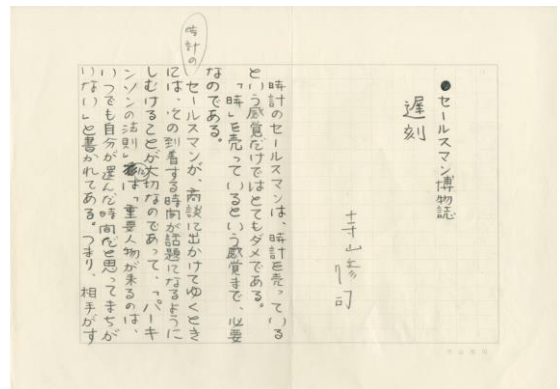 ●セールスマン博物誌
遅刻
寺山修司
時計のセールスマンは、時計を売っている
という感覚だけではとてもダメである。
「時」を売っているという感覚まで、必要
なのである。
時計の
セールスマンが、商談に出かけてゆくとき
には、その到着する時間が話題になるように
しむけることが大切なのであって、「パーキ
ンソンの法則」には「重要人物が来るのは、
いつでも自分が選んだ時間だと思ってまちが
いない」と書かれてある。つまり、相手がす